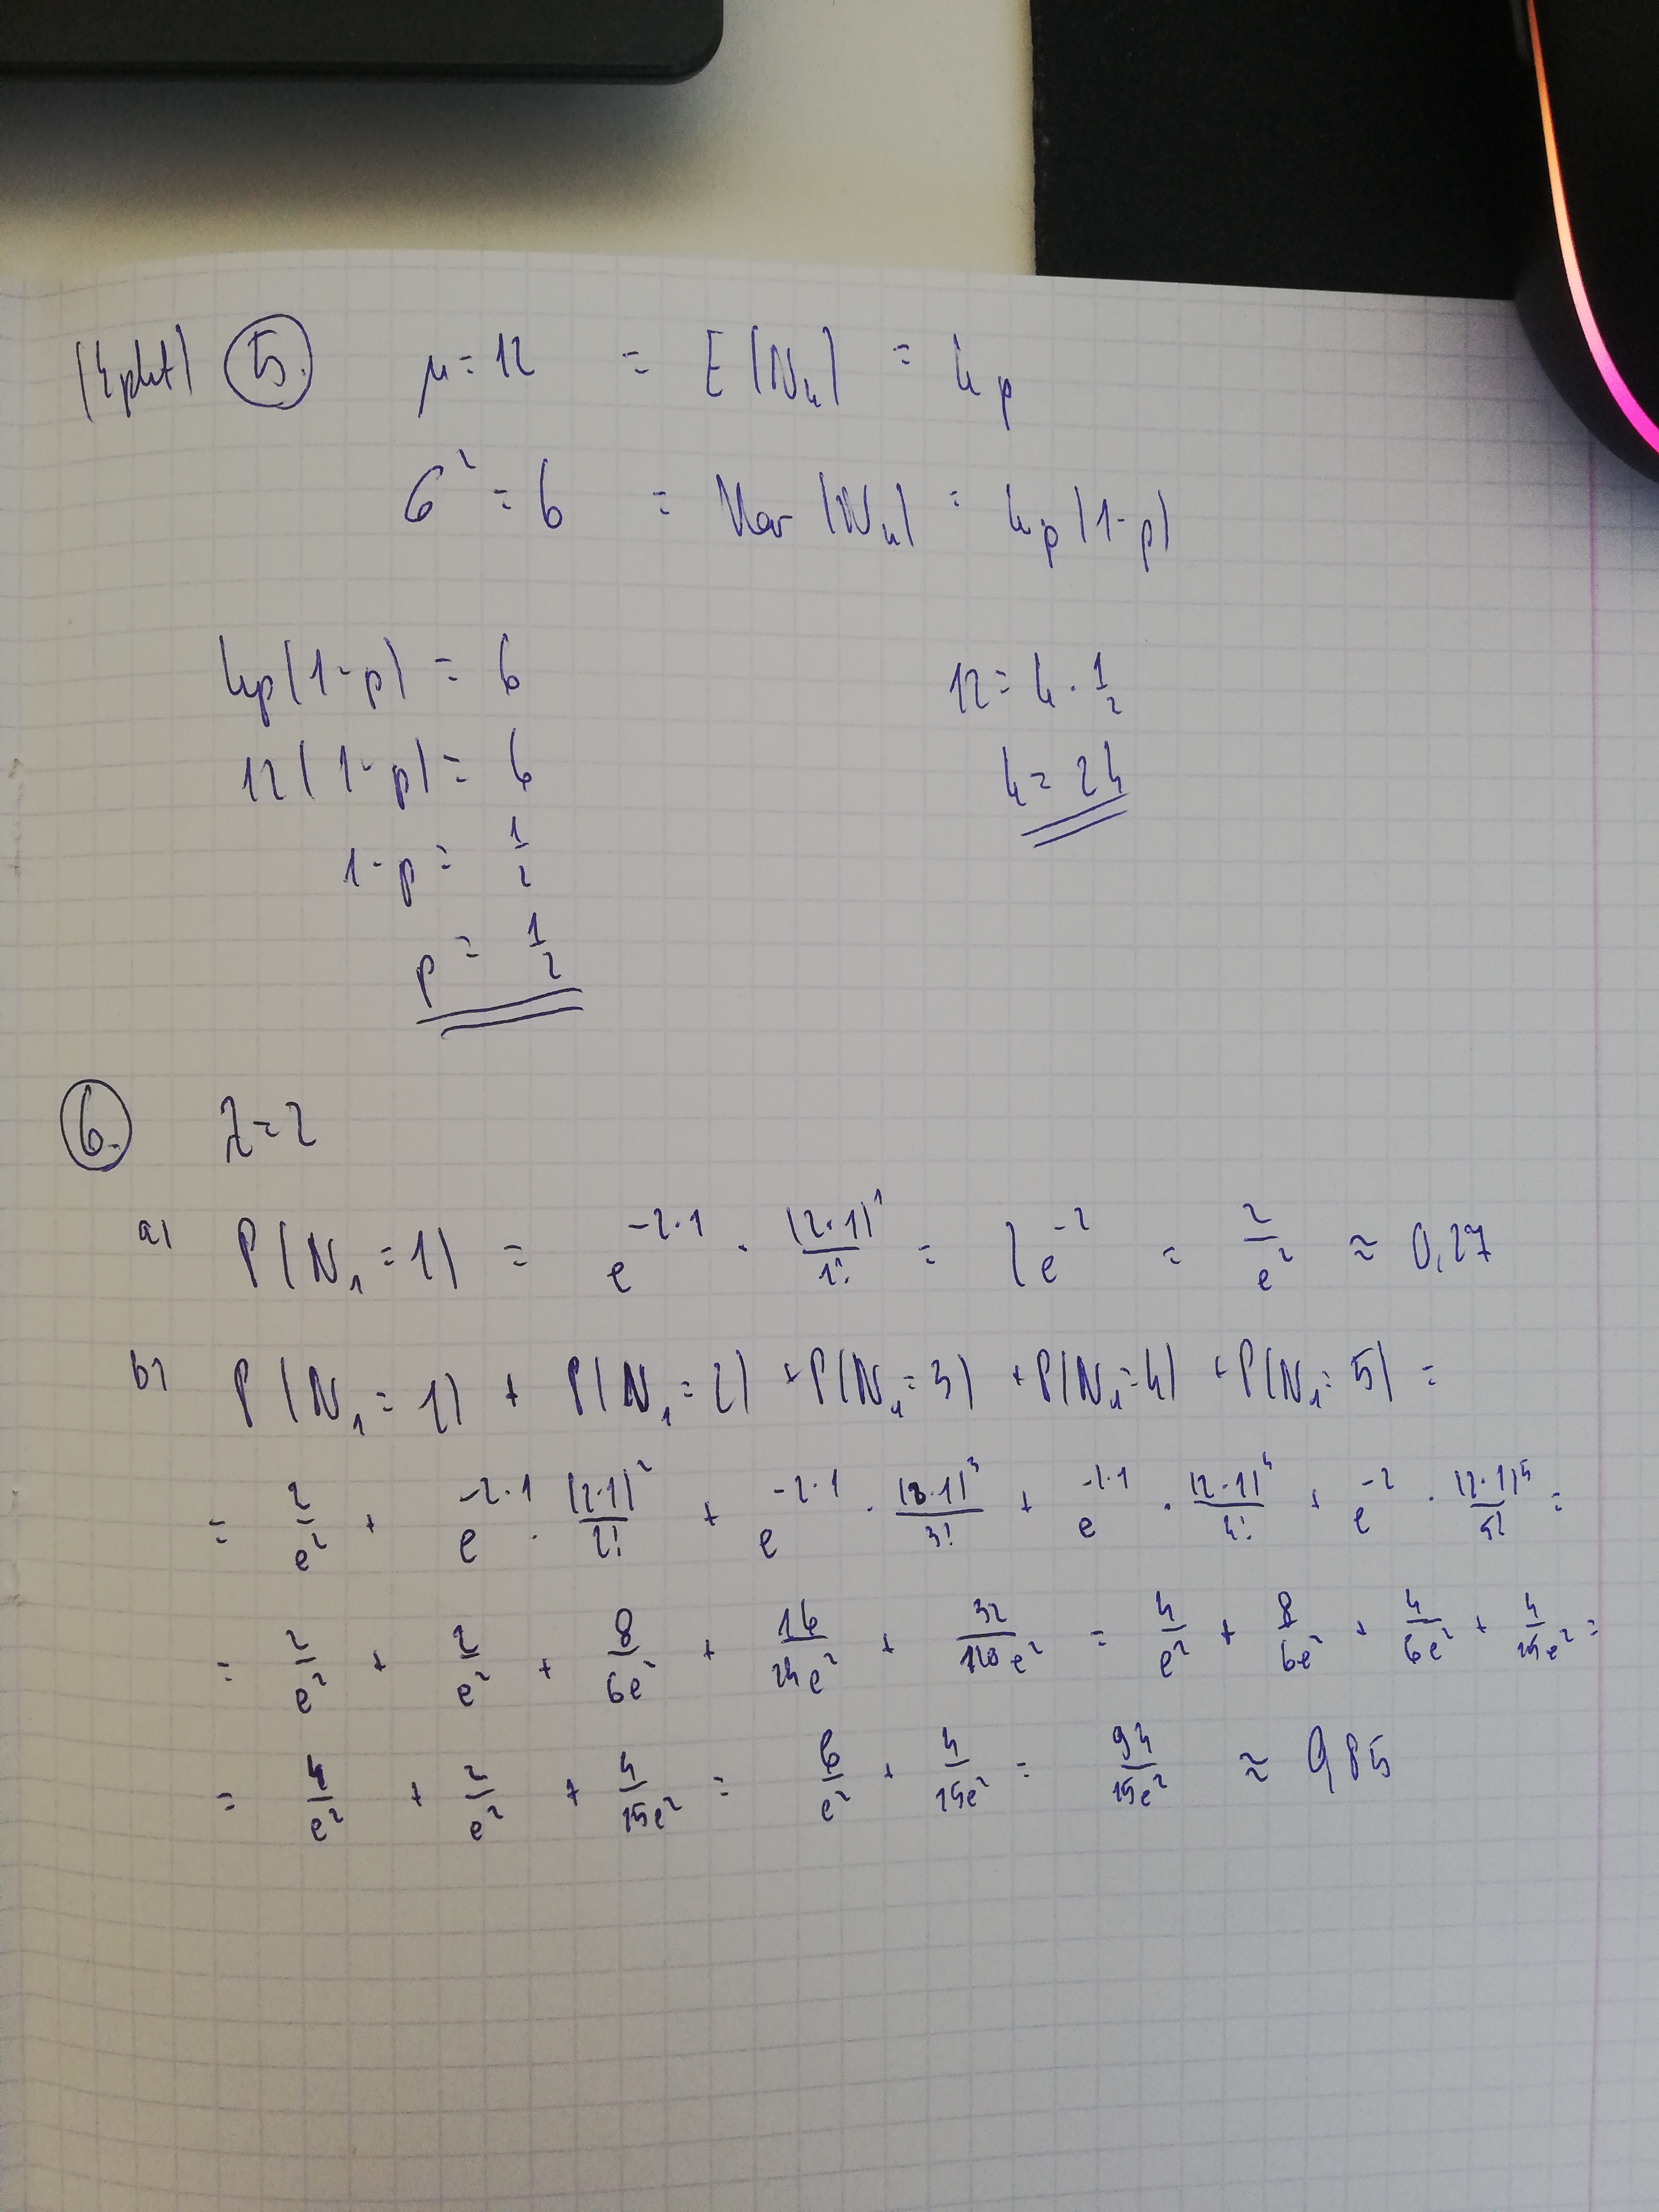 (4 pkt) 5. μ = 12 = E(N₄) = 4p
σ² = 6 = Var(N₄) = 4p(1-p)
4p(1-p) = 6 12 = 4 · 1/2
12(1-p) = 6 4 = 24
1-p = 1/2
p = 1/2
6. λ = 2
a) P(N₁ = 1) = e^(-2·1) · (2·1)¹/1! = 2e^(-2) = 2/e² ≈ 0,27
b) P(N₁ = 1) + P(N₁ = 2) + P(N₁ = 3) + P(N₁ = 4) + P(N₁ = 5) =
= 2/e² + e^(-2·1) · (2·1)²/2! + e^(-2·1) · (2·1)³/3! + e^(-2·1) · (2·1)⁴/4! + e^(-2) · (2·1)⁵/5! =
= 2/e² + 2/e² + 8/6e² + 16/24e² + 32/120e² = 4/e² + 8/6e² + 4/6e² + 4/15e² =
= 4/e² + 2/e² + 4/15e² = 6/e² + 4/15e² = 94/15e² ≈ 0,85